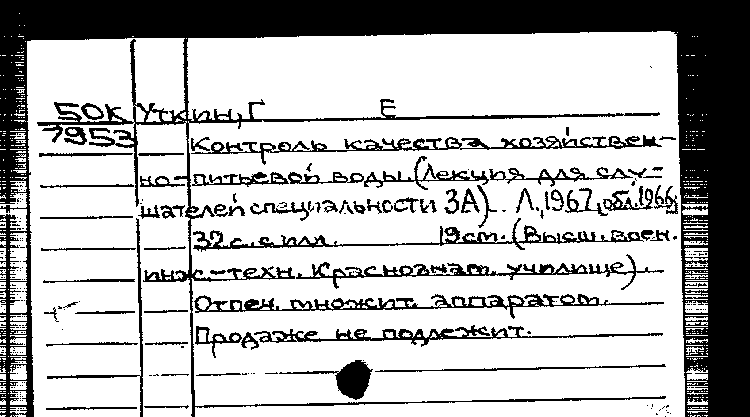 50К Уткин, Г Е
7953
Контроль качества хозяйствен-
но-питьевой воды (Лекция для слу-
шателей специальности ЗА). Л., 1967, обл. 1966.
32 с. с илл. 19 см. (Высш. воен.
инж.-техн. Краснознам. училище).
Отпеч. множит. аппаратом.
Продаже не подлежит.